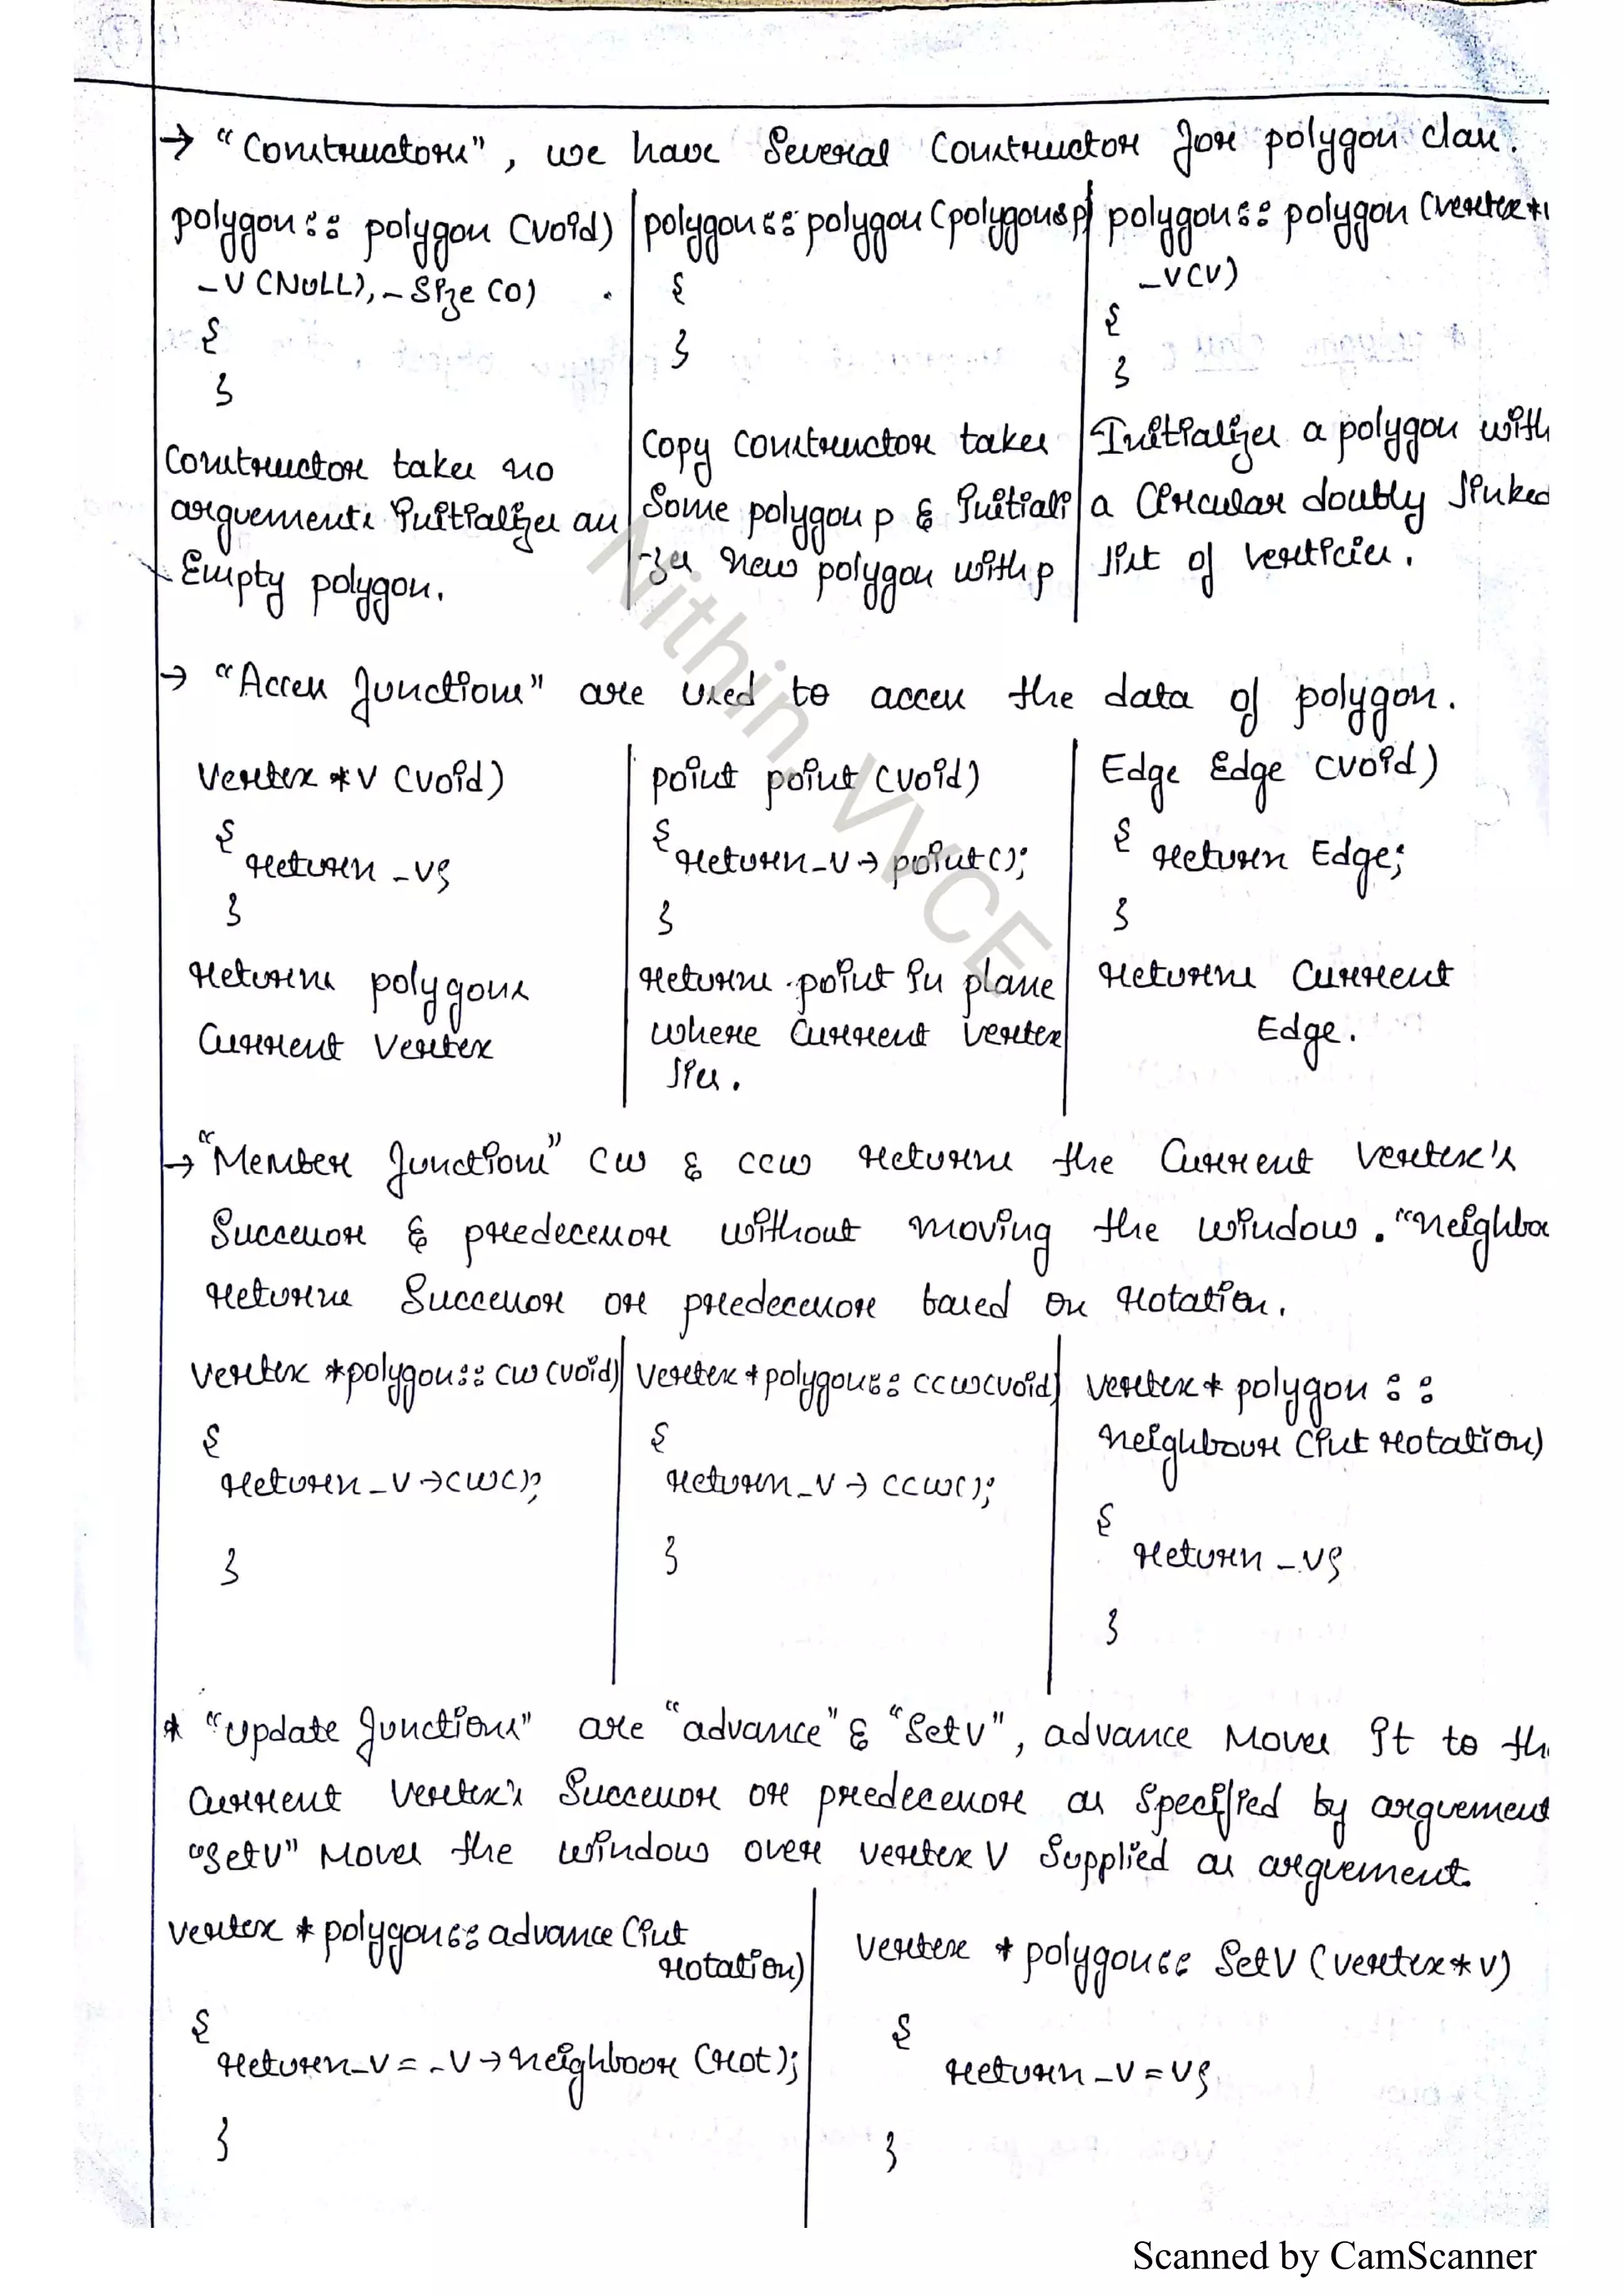 → "Constructors", we have Several Constructor for polygon class.
polygon:: polygon (void)
-V (NULL), -Size (0)
{
}
Constructor takes no
arguements Initializes an
Empty polygon.
polygon::polygon (polygon&p)
{
}
Copy Constructor takes
Some polygon p & Initiali
-zes new polygon with p
polygon:: polygon (vertex*
-V(V)
{
}
Initializes a polygon with
a Circular doubly linked
list of verticies.
→ "Access functions" are used to access the data of polygon.
Vertex *V (void)
{
return -v;
}
returns polygons
Current Vertex
point point (void)
{
return-v→point();
}
returns point in plane
where Current vertex
lies.
Edge Edge (void)
{
return Edge;
}
returns Current
Edge.
→ "Member functions" CW & CCW returns the Current vertex's
Successor & predecessor without moving the window. "neighbo
returns Successor or predecessor based on rotation.
Vertex *polygon::CW(void)
{
return-V→CW();
}
Vertex*polygon::CCW(void)
{
return-V→CCW();
}
vertex* polygon ::
neighbour (int rotation)
{
return -v;
}
* "Update functions" are "advance" & "SetV", advance Moves It to th
Current Vertex's Successor or predecessor as Specified by arguement
"SetV" Moves the window over vertex V Supplied as arguement.
vertex *polygon::advance (int
rotation)
{
return-V=-V→neighboor (rot);
}
Vertex *polygon:: SetV (vertex*v)
{
return-V=V;
}
Nithin, VVCE
Scanned by CamScanner